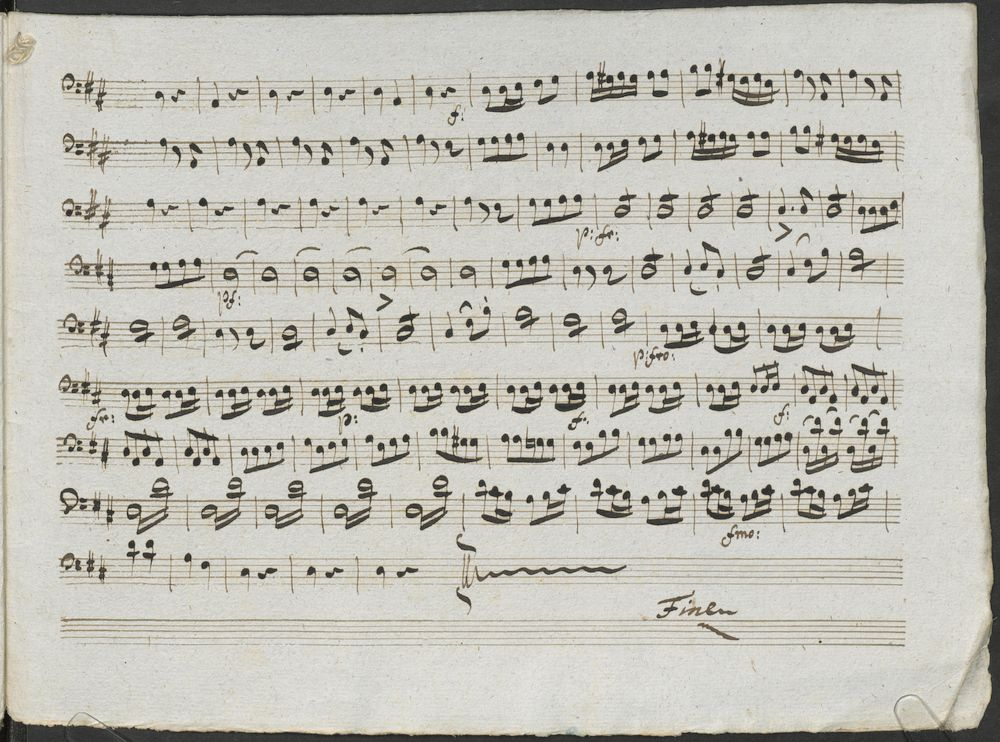 f:
p: fr:
pf:
p: fro:
fr: p: f. f:
fmo:
Finen